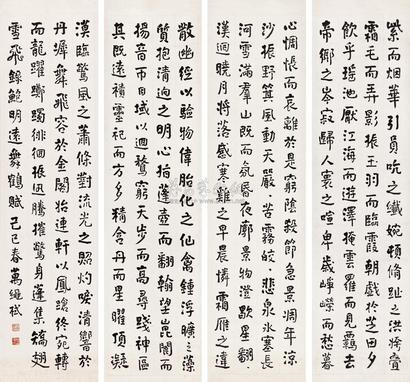 紫而煙華引員吭之纖婉頓修趾之洪姱疊
霜毛而弄影振玉羽而臨霞朝戲於芝田夕
飲乎瑤池厭江海而游澤掩雲羅而見羈去
帝鄉之岑寂歸人寰之喧卑歲崢嶸而愁暮
心惆悵而哀離於是窮陰殺節急景凋年涼
沙振野箕風動天嚴嚴苦霧皎皎悲泉冰塞長
河雪滿羣山既而氛昏夜歇景物澄廓星翻
漢迴曉月將落感寒雞之早晨憐霜雁之違
散幽經以驗物偉胎化之仙禽鍾浮曠之藻
質抱清迥之明心指蓬壺而翻翰望崑閬而
揚音帀日域以迴騖窮天步而高尋踐神區
其既遠積靈祀而方多精含丹而星曜頂凝
漠臨驚風之蕭條對流光之照灼唳清響於
丹墀舞飛容於金閣始連軒以鳳蹌終宛轉
而龍躍躑躅徘徊振迅騰摧驚身蓬集矯翅
雪飛 錄鮑明遠舞鶴賦 己巳春 萬繩栻